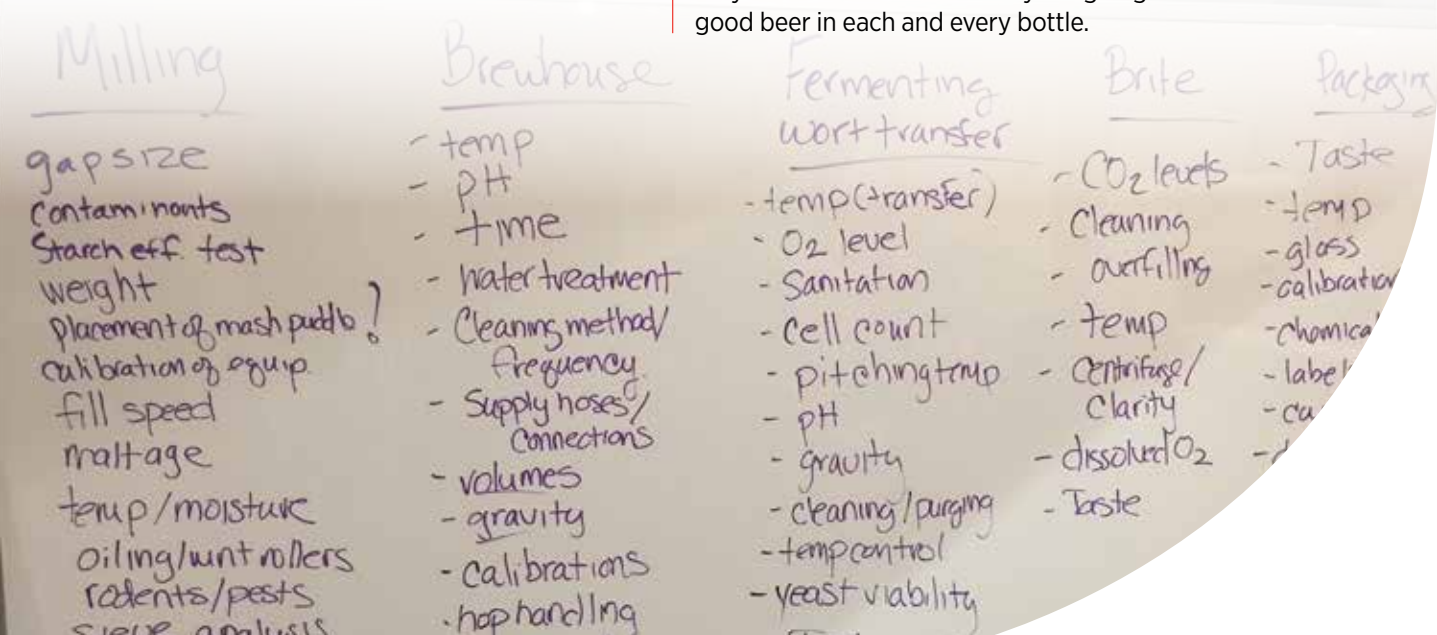 good beer in each and every bottle.
Milling
gap size
Contaminants
Starch eff. test
weight
placement of mash puddlo?
calibration of equip.
fill speed
malt age
temp/moisture
oiling/ rollers
rodents/pests
sieve analysis
Brewhouse
- temp
- pH
- time
- water treatment
- Cleaning method/
frequency
- Supply hoses/
Connections
- volumes
- gravity
- calibrations
- hop handling
Fermenting
wort transfer
- temp (transfer)
- O2 level
- Sanitation
- cell count
- pitching temp
- pH
- gravity
- cleaning/purging
- temp control
- yeast viability
Brite
- CO2 levels
- Cleaning
- overfilling
- temp
- Centrifuge/
Clarity
- dissolved O2
- Taste
Packaging
- Taste
- temp
- glass
- calibration
- chemical
- label